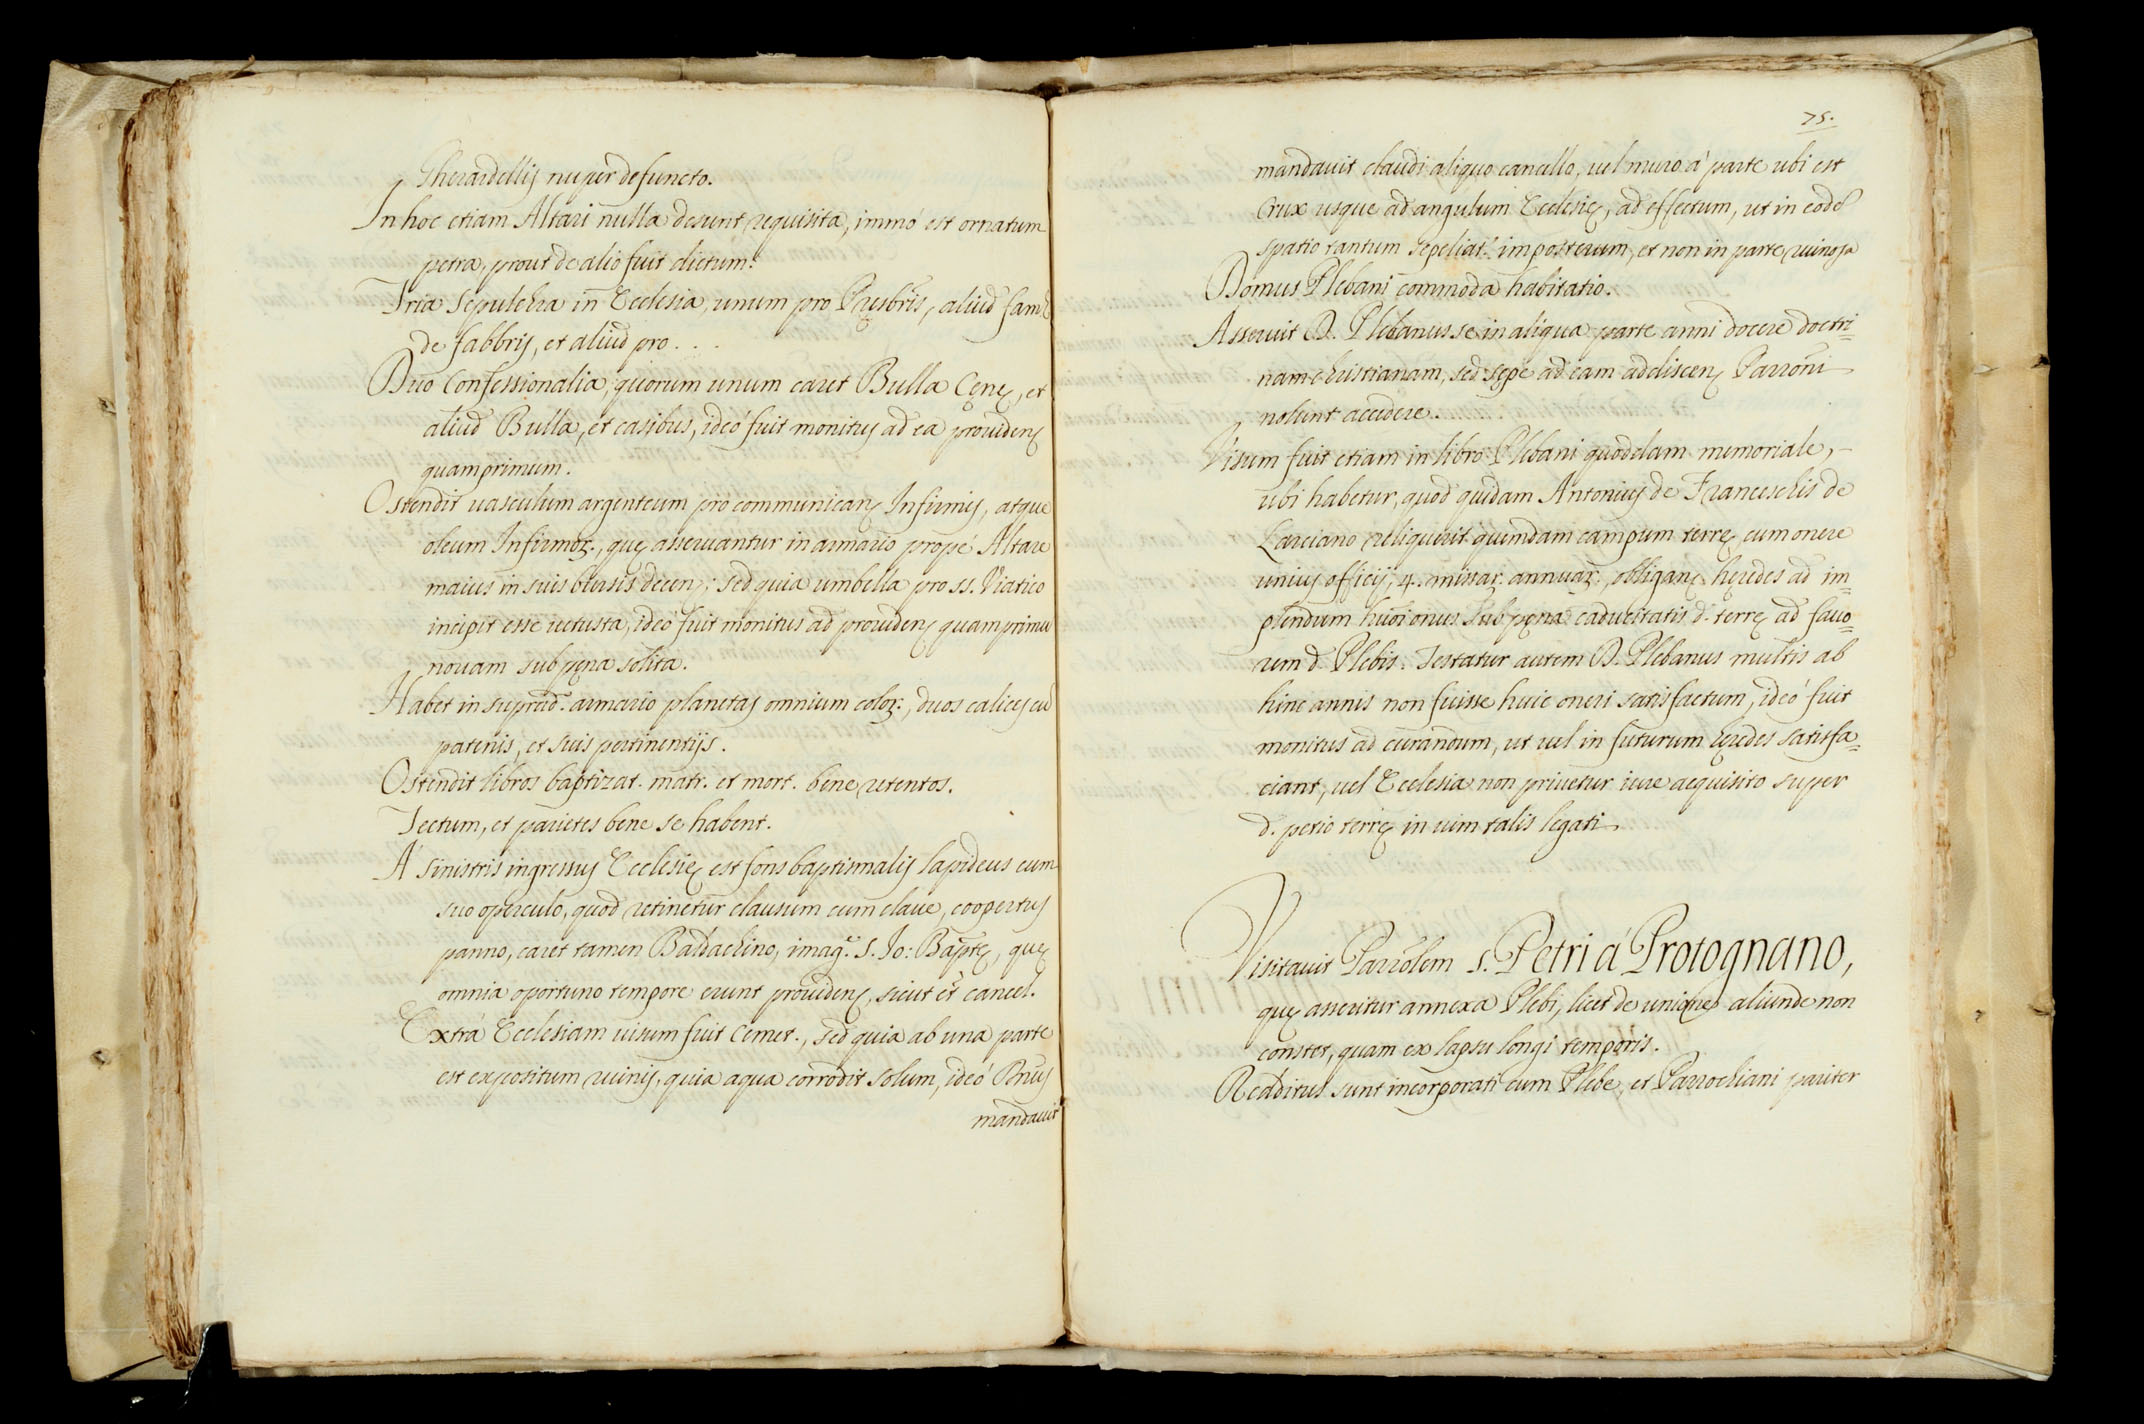 Gherardellis nuper defuncto.
In hoc etiam Altari nulla desunt requisita, immò est ornatum
petra, prout de alio fuit dictum.
Tria sepulchra in Ecclesia, unum pro Presbris, aliud fam
de fabbris, et aliud pro . . .
Duo Confessionalia, quorum unum caret Bulla Cęnę, et
aliud Bulla, et casibus, ideò fuit monitus ad ea providenę
quamprimum.
Ostendit vasculum argenteum pro communicanę Infirmis, atque
oleum Infirmoꝝ., quę asservantur in armario propè Altare
maius in suis bursis decenę; sed quia umbella pro ss. Viatico
incipit esse vetusta, ideò fuit monitus ad providenę quamprimũ
novam sub pęna solita.
Habet in suprad. armario planetas omnium coloꝝ:, duos calices cũ
patenis, et suis pertinentijs.
Ostendit libros baptizat. matr. et mort. bene retentos.
Tectum, et parietes bene se habent.
A' sinistris ingressus Ecclesię est fons baptismalis lapideus cum
suo operculo, quod retinetur clausum cum clave, coopertus
panno, caret tamen Baldachino, imag.e S. Io: Baptę, quę
omnia oportuno tempore erunt providenę, sicut et cancel.
Extrà Ecclesiam visum fuit Cemet., sed quia ab una parte
est expositum ruinis, quia aqua corrodit solum, ideò Dnus
mandavit
75.
mandavit claudi aliquo cancello, vel muro à parte ubi est
Crux usque ad angulum Ecclesię, ad effectum, ut in eodẽ
spatio tantum sepeliat.r imposterum, et non in parte ruinosa
Domus Plebani commoda habitatio.
Asseruit D. Plebanus se in aliqua parte anni docere doctri=
nam christianam, sed sępe ad eam addiscenę Parroni
nolunt accedere.
Visum fuit etiam in libro Plebani quoddam memoriale, -
ubi habetur, quod quidam Antonius de Franceschis de
Larciano reliquerit quemdam campum terrę cum onere
unius officij, 4. missaꝝ. annuaꝝ., obliganę hęredes ad im=
plendum huõi onus sub pęna caducitatis d. terrę ad favo=
rem d. Plebis. Testatur autem D. Plebanus multis ab
hinc annis non fuisse huic oneri satisfactum, ideò fuit
monitus ad curandum, ut vel in futurum hęredes satisfa=
ciant, vel Ecclesia non privetur iure acquisito super
d. petio terrę in vim talis legati
Visitavit Parrõlem S. Petri à Protognano,
quę asseritur annexa Plebi, licet de unione aliunde non
constet, quam ex lapsu longi temporis.
Redditus sunt incorporati cum Plebe, et Parrochiani pariter